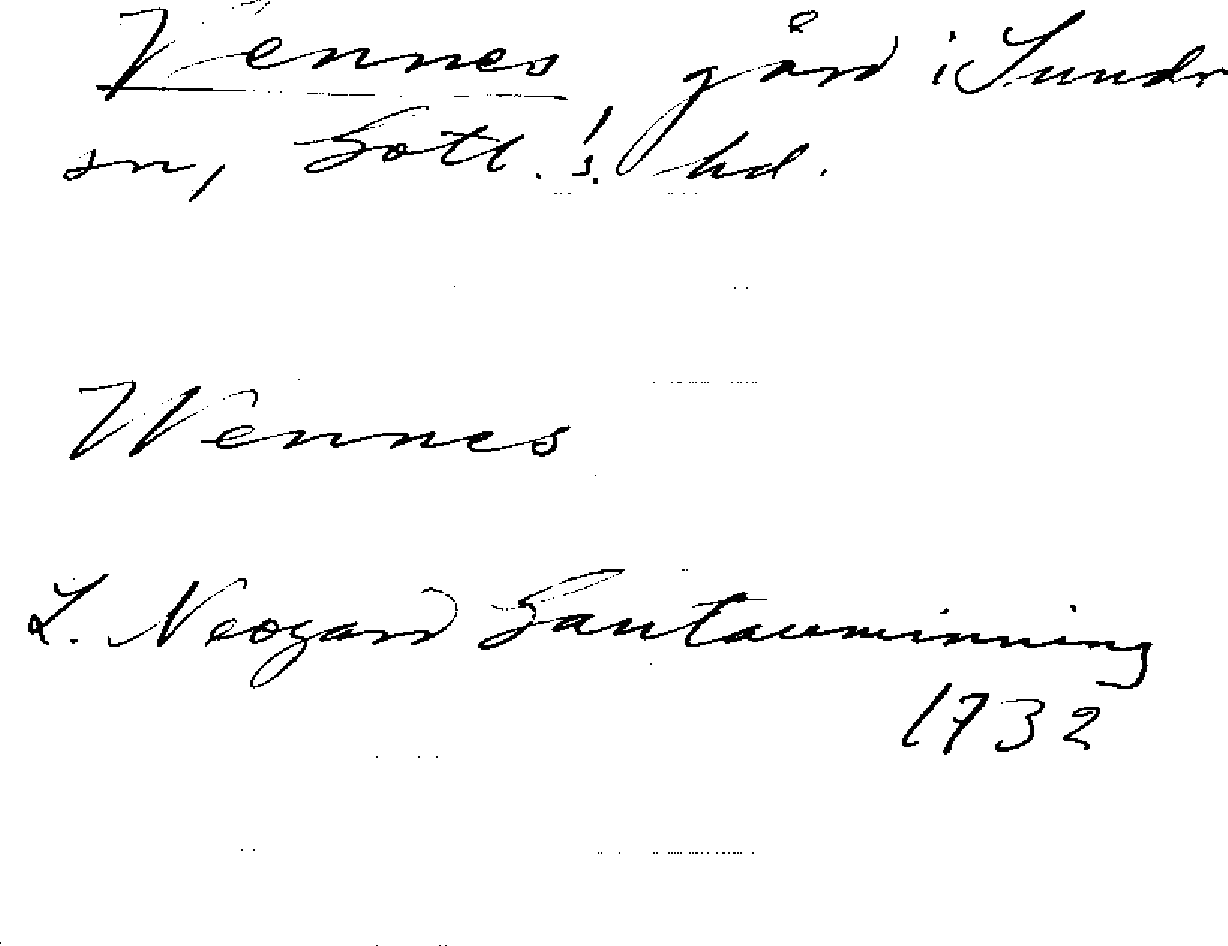 Vennes gård i Sundr
sn, Gotl. s. hd.
Wennes
L. Neogard Gautauminning
1732